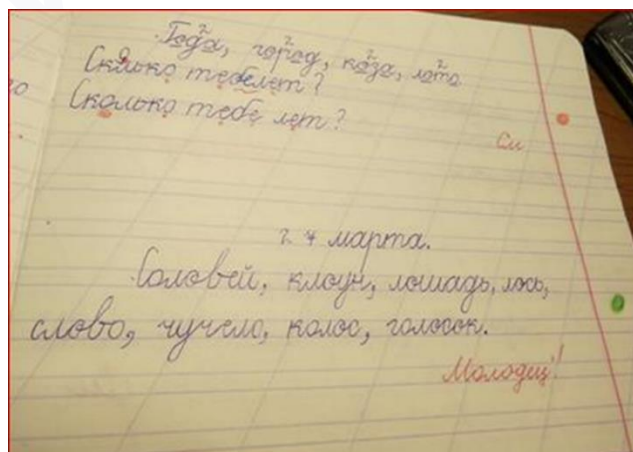 Года, город, коза, лото
Сколько тебелет?
Сколько тебе лет?
См
4 марта.
Соловей, клоун, лошадь, лось,
слово, чучело, колос, голосок.
Молодец!